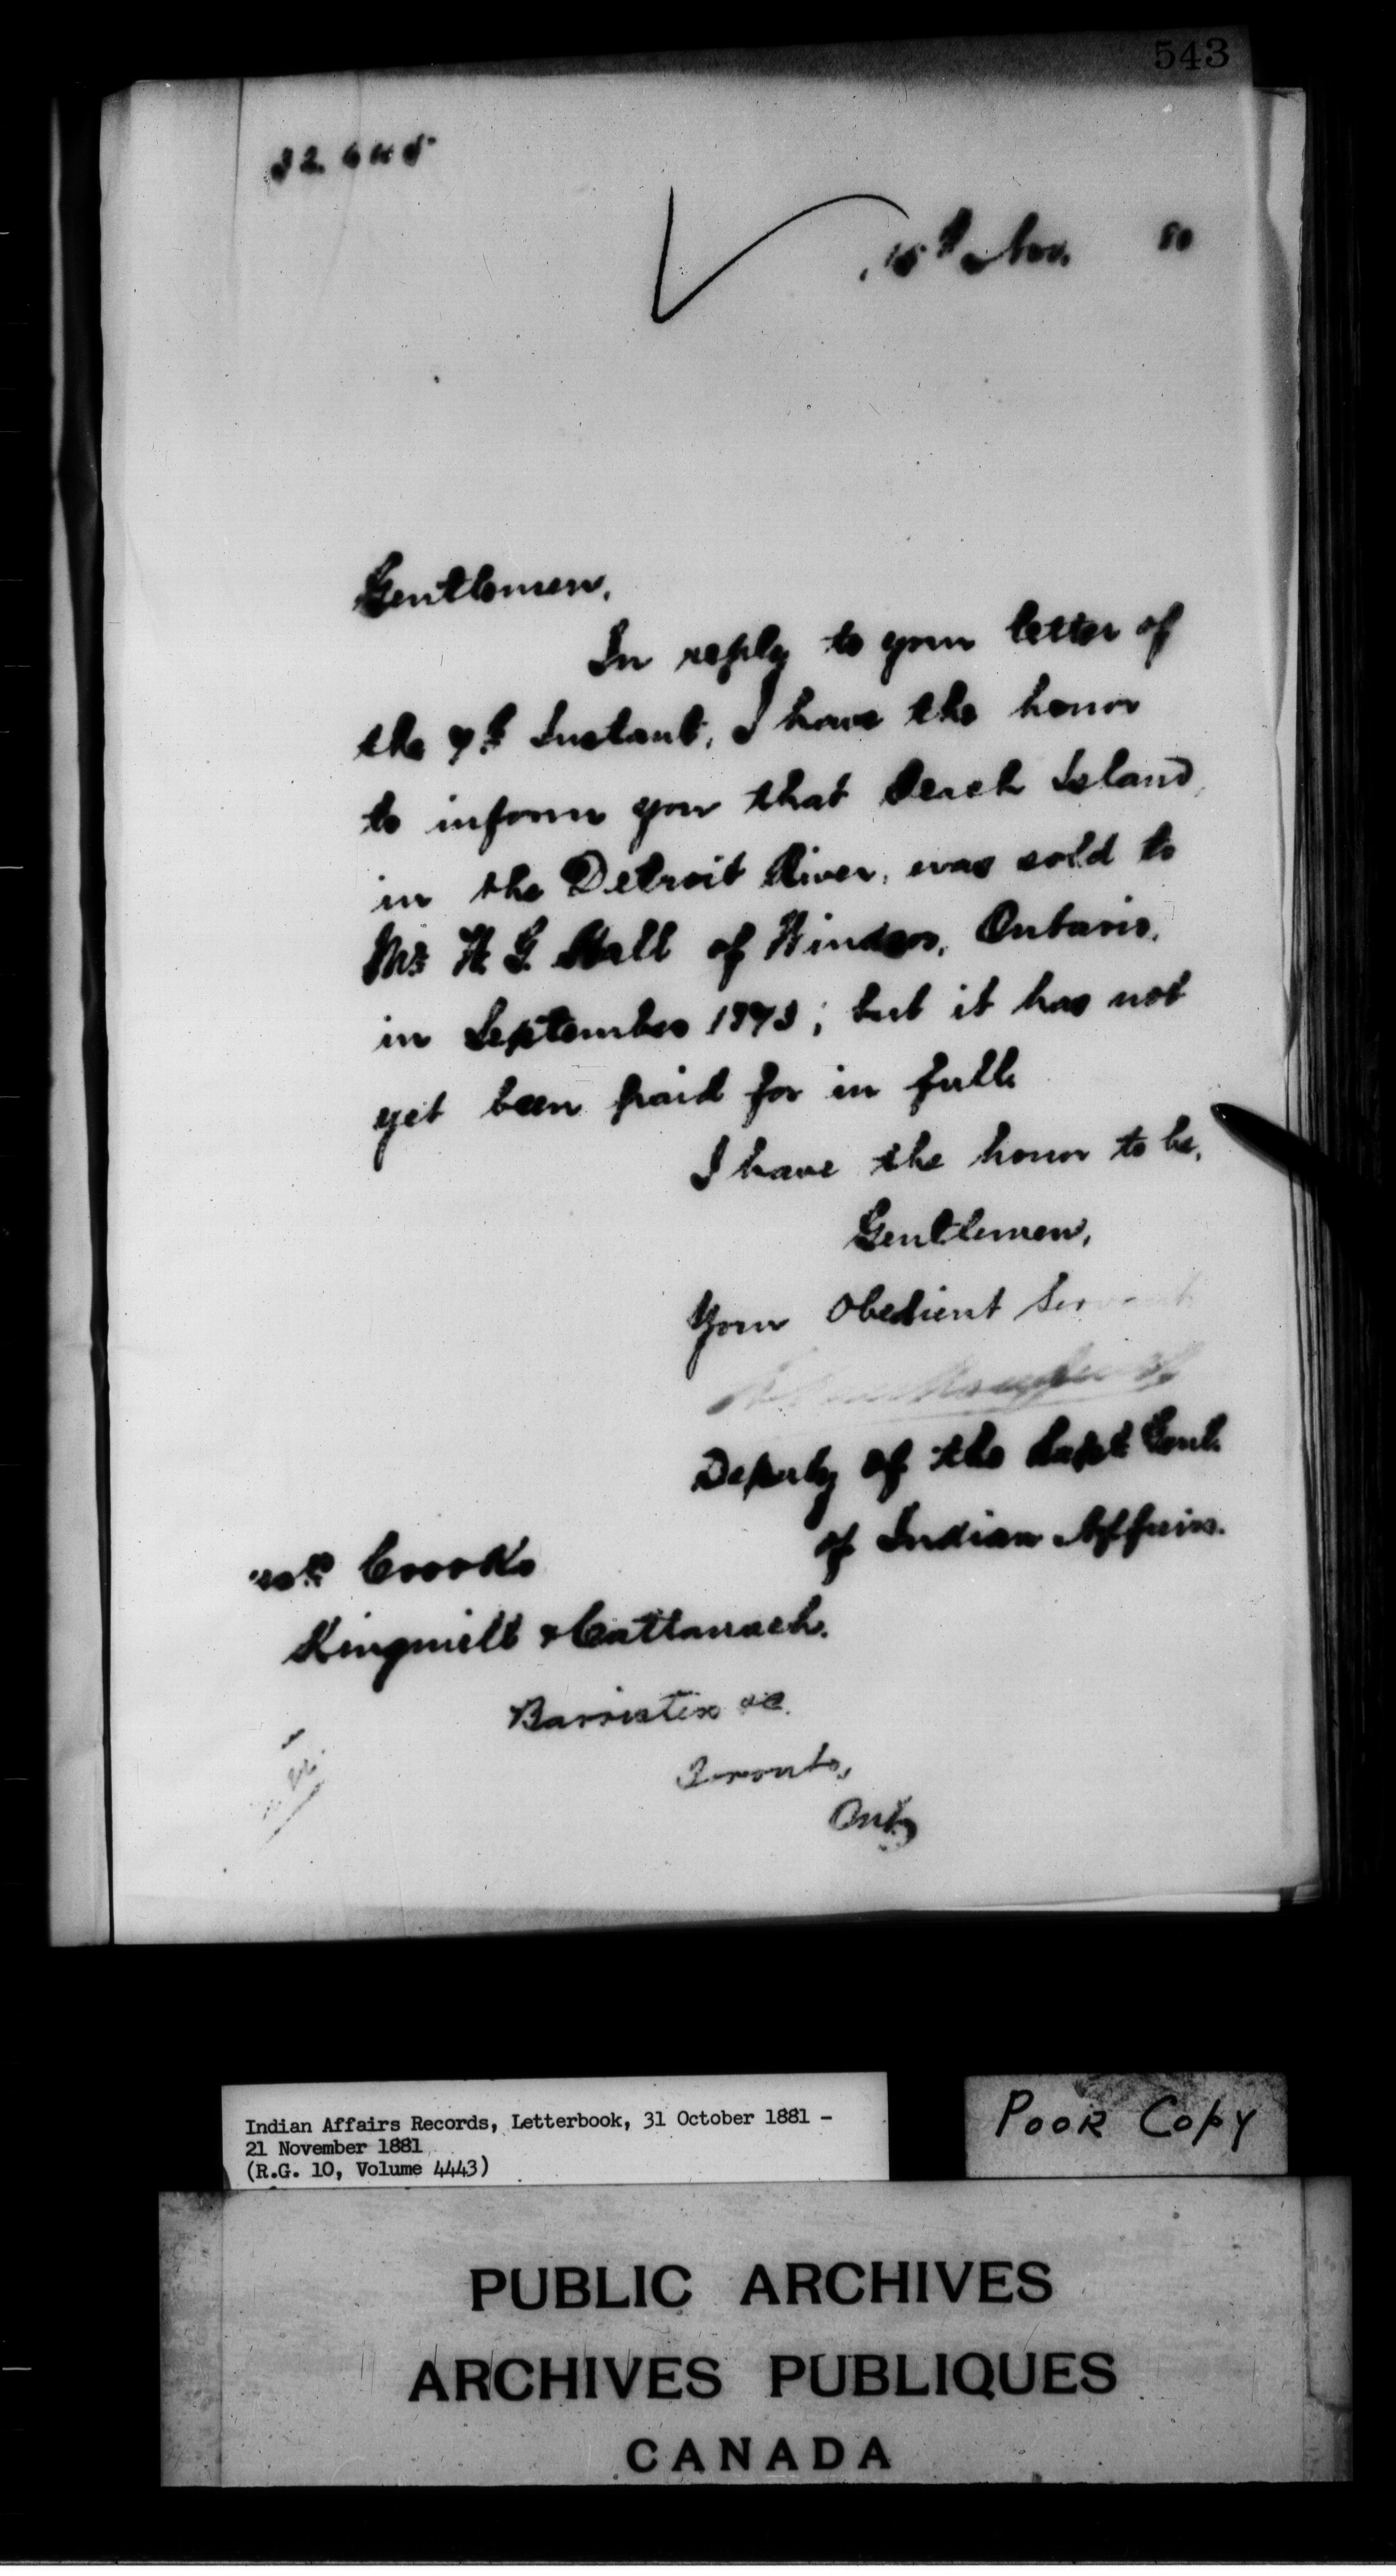 543
32.645
15th Nov. 80
Gentlemen,
In reply to your letter of
the 7th Instant, I have the honor
to inform you that Peach Island,
in the Detroit River, was sold to
Mr H. G. Hall of Windsor, Ontario,
in September 1873; but it has not
yet been paid for in full.
I have the honor to be,
Gentlemen,
Your Obedient Servant
Deputy of the Supt Genl.
of Indian Affairs.
Crooks
Kingmill & Cattanach.
Barristers &c.
Toronto,
Ont.
Indian Affairs Records, Letterbook, 31 October 1881 -
21 November 1881
(R.G. 10, Volume 4443)
POOR COPY
PUBLIC ARCHIVES
ARCHIVES PUBLIQUES
CANADA